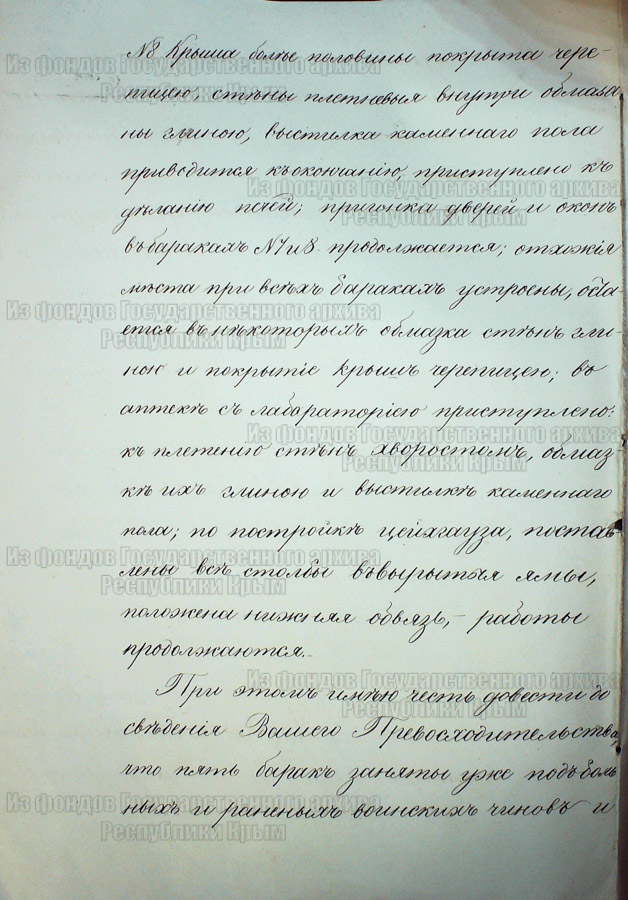 №8 Крыша болѣе половины покрыта чере-
пицею, стѣны плетневыя внутри обмаза
ны глиною, выстилка каменнаго пола
приводится къ окончанію, приступлено къ
дѣланію печей; пригонка дверей и оконъ
въ баракахъ №7 и 8. продолжается; отхожія
мѣста при всѣхъ баракахъ устроены, оста-
ется въ нѣкоторымъ обмазка стѣнъ гли-
ною и покрытіе крышъ черепицею; въ
аптекѣ съ лабораторіею приступлено:
къ плетенію стѣнъ хворостомъ, обмаз-
кѣ ихъ глиною и выстилкѣ каменнаго
пола; по постройкѣ цейхгауза, постав-
лены всѣ столбы въ вырытыя ямы,
положена нижняя обвязь, – работы
продолжаются.–
При этомъ имѣю честь довести до
свѣденія Вашего Превосходительства,
что пять баракъ заняты уже подъ боль
ныхъ и раненыхъ воинскихъ чиновъ и
Из фондов Государственного архива
Республики Крым
Из фондов Государственного архива
Республики Крым
Из фондов Государственного архива
Республики Крым
Из фондов Государственного архива
Республики Крым
Из фондов Государственного архива
Республики Крым
Из фондов Государственного архива
Республики Крым
Из фондов Государственного архива
Республики Крым